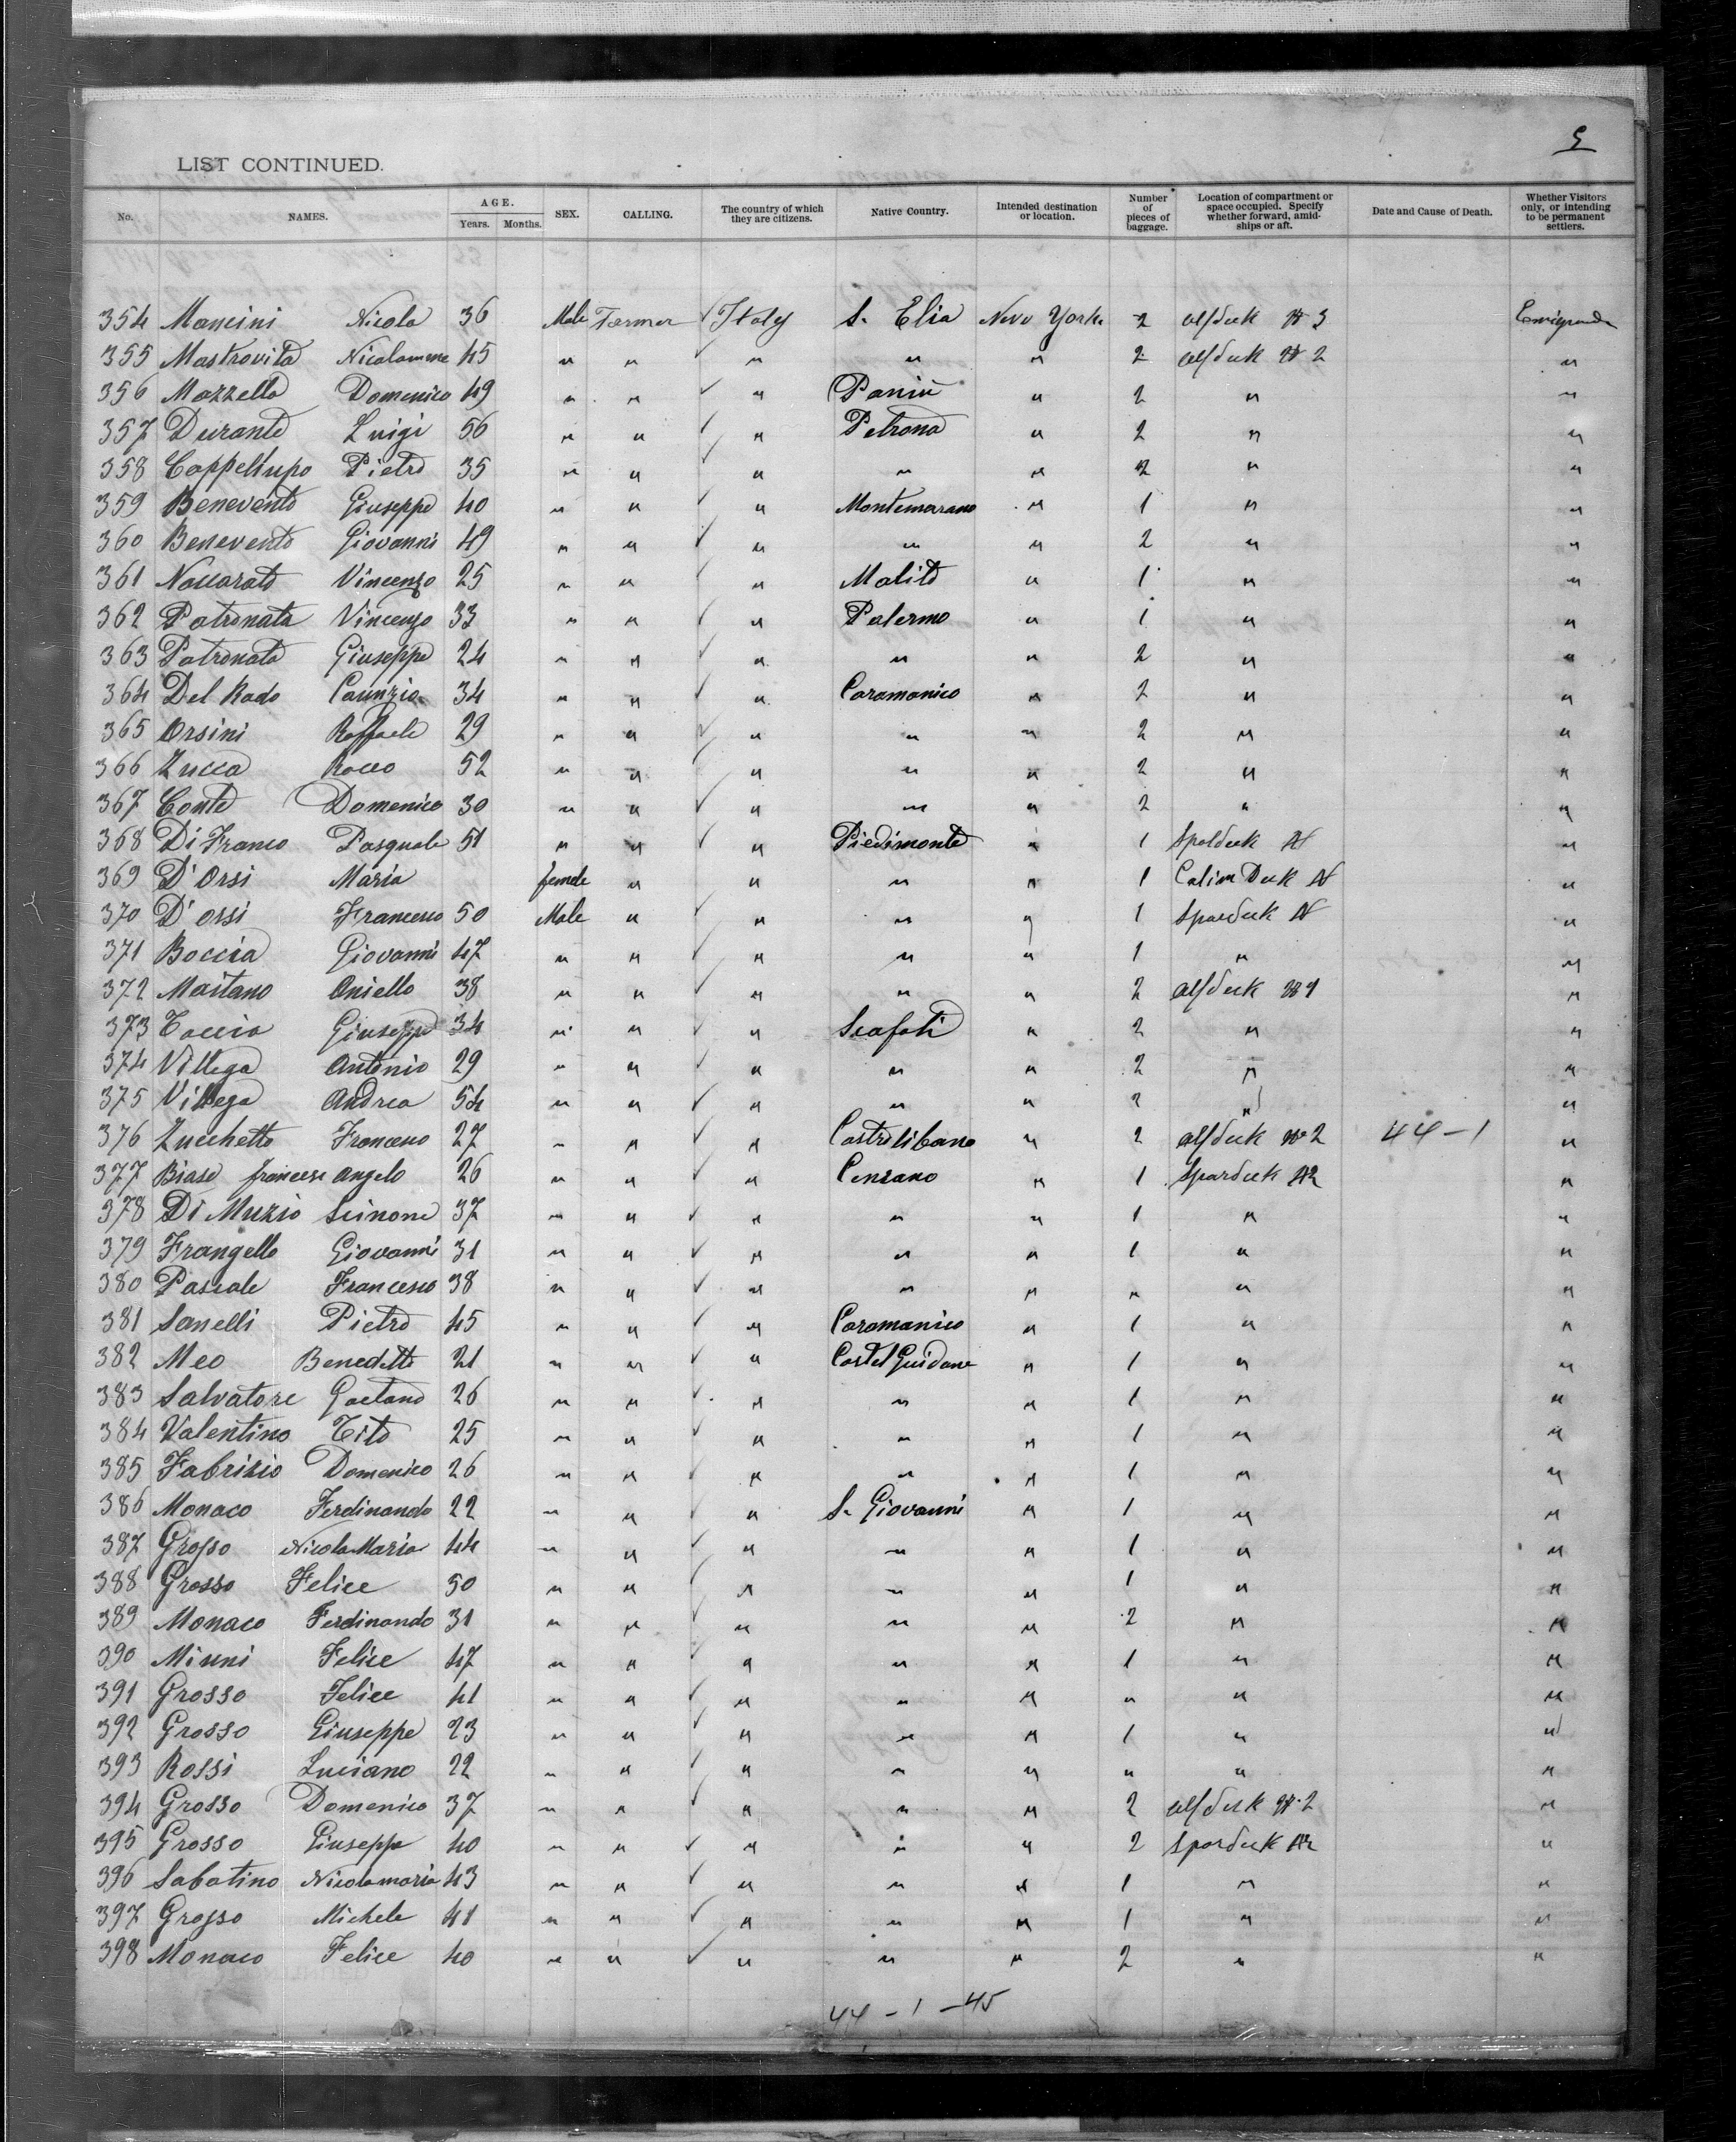 9
LIST CONTINUED.
No. NAMES. AGE. Years. Months. SEX. CALLING. The country of which they are citizens. Native Country. Intended destination or location. Number of pieces of baggage. Location of compartment or space occupied. Specify whether forward, amidships or aft. Date and Cause of Death. Whether Visitors only, or intending to be permanent settlers.
354 Mancini Nicola 36 Male Farmer ✓ Italy S. Elia New York 2
355 Mastrovita 45 " " ✓ " " " 2 "
356 Mazzella Domenico 49 " " ✓ " " 2 " "
357 Durante Luigi 56 " " ✓ " Petrona " 2 " "
358 Pietro 35 " " ✓ " " " 2 " "
359 Benevento Giuseppe 40 " " ✓ " Montemarano " 1 " "
360 Benevento Giovanni 49 " " ✓ " " " 2 " "
361 Naccarato Vincenzo 25 " " ✓ " Malito " 1 " "
362 Patronata Vincenzo 33 " " ✓ " Palermo " 1 " "
363 Patronata Giuseppe 24 " " ✓ " " " 2 " "
364 Del Rado 34 " " ✓ " Caramanico " 2 " "
365 Orsini Raffaele 29 " " ✓ " " " 2 " "
366 Zucca Rocco 52 " " ✓ " " " 2 " "
367 Conte Domenico 30 " " ✓ " " " 2 " "
368 Di Franco Pasquale 51 " " ✓ " Piedimonte " 1 "
369 D'Orsi Maria female " " " " 1 "
370 D'orsi Francesco 50 Male " ✓ " " " 1 "
371 Boccia Giovanni 47 " " ✓ " " " 1 " "
372 Maitano Aniello 38 " " ✓ " " " 2 "
373 Coccia Giuseppe 34 " " ✓ " Scafati " 2 " "
374 Villega Antonio 29 " " ✓ " " " 2 " "
375 Villega Andrea 54 " " ✓ " " " 2 " "
376 Zucchetto Francesco 27 " " ✓ " " 2 44-1 "
377 Biase francese Angelo 26 " " ✓ " " 1 "
378 Di Muzio 37 " " ✓ " " " 1 " "
379 Frangello Giovanni 31 " " ✓ " " " 1 " "
380 Pascale Francesco 38 " " ✓ " " " " " "
381 Sanelli Pietro 45 " " ✓ " Caramanico " 1 " "
382 Meo Benedetto 21 " " ✓ " Castel Guidone " 1 " "
383 Salvatore Gaetano 26 " " ✓ " " " 1 " "
384 Valentino Tito 25 " " ✓ " " " 1 " "
385 Fabrizio Domenico 26 " " ✓ " " " 1 " "
386 Monaco Ferdinando 22 " " ✓ " S. Giovanni " 1 " "
387 Grosso Nicola Maria 44 " " ✓ " " " 1 " "
388 Grosso Felice 50 " " ✓ " " " 1 " "
389 Monaco Ferdinando 31 " " ✓ " " " 2 " "
390 Minni Felice 47 " " ✓ " " " 1 " "
391 Grosso Felice 41 " " ✓ " " " " " "
392 Grosso Giuseppe 23 " " ✓ " " " 1 " "
393 Rossi Luciano 22 " " ✓ " " " " " "
394 Grosso Domenico 37 " " ✓ " " " 2 "
395 Grosso Giuseppe 40 " " ✓ " " " 2 "
396 Sabatino Nicolamaria 43 " " ✓ " " " 1 " "
397 Grosso Michele 41 " " ✓ " " " 1 " "
398 Monaco Felice 40 " " ✓ " " " 2 " "
44-1-45